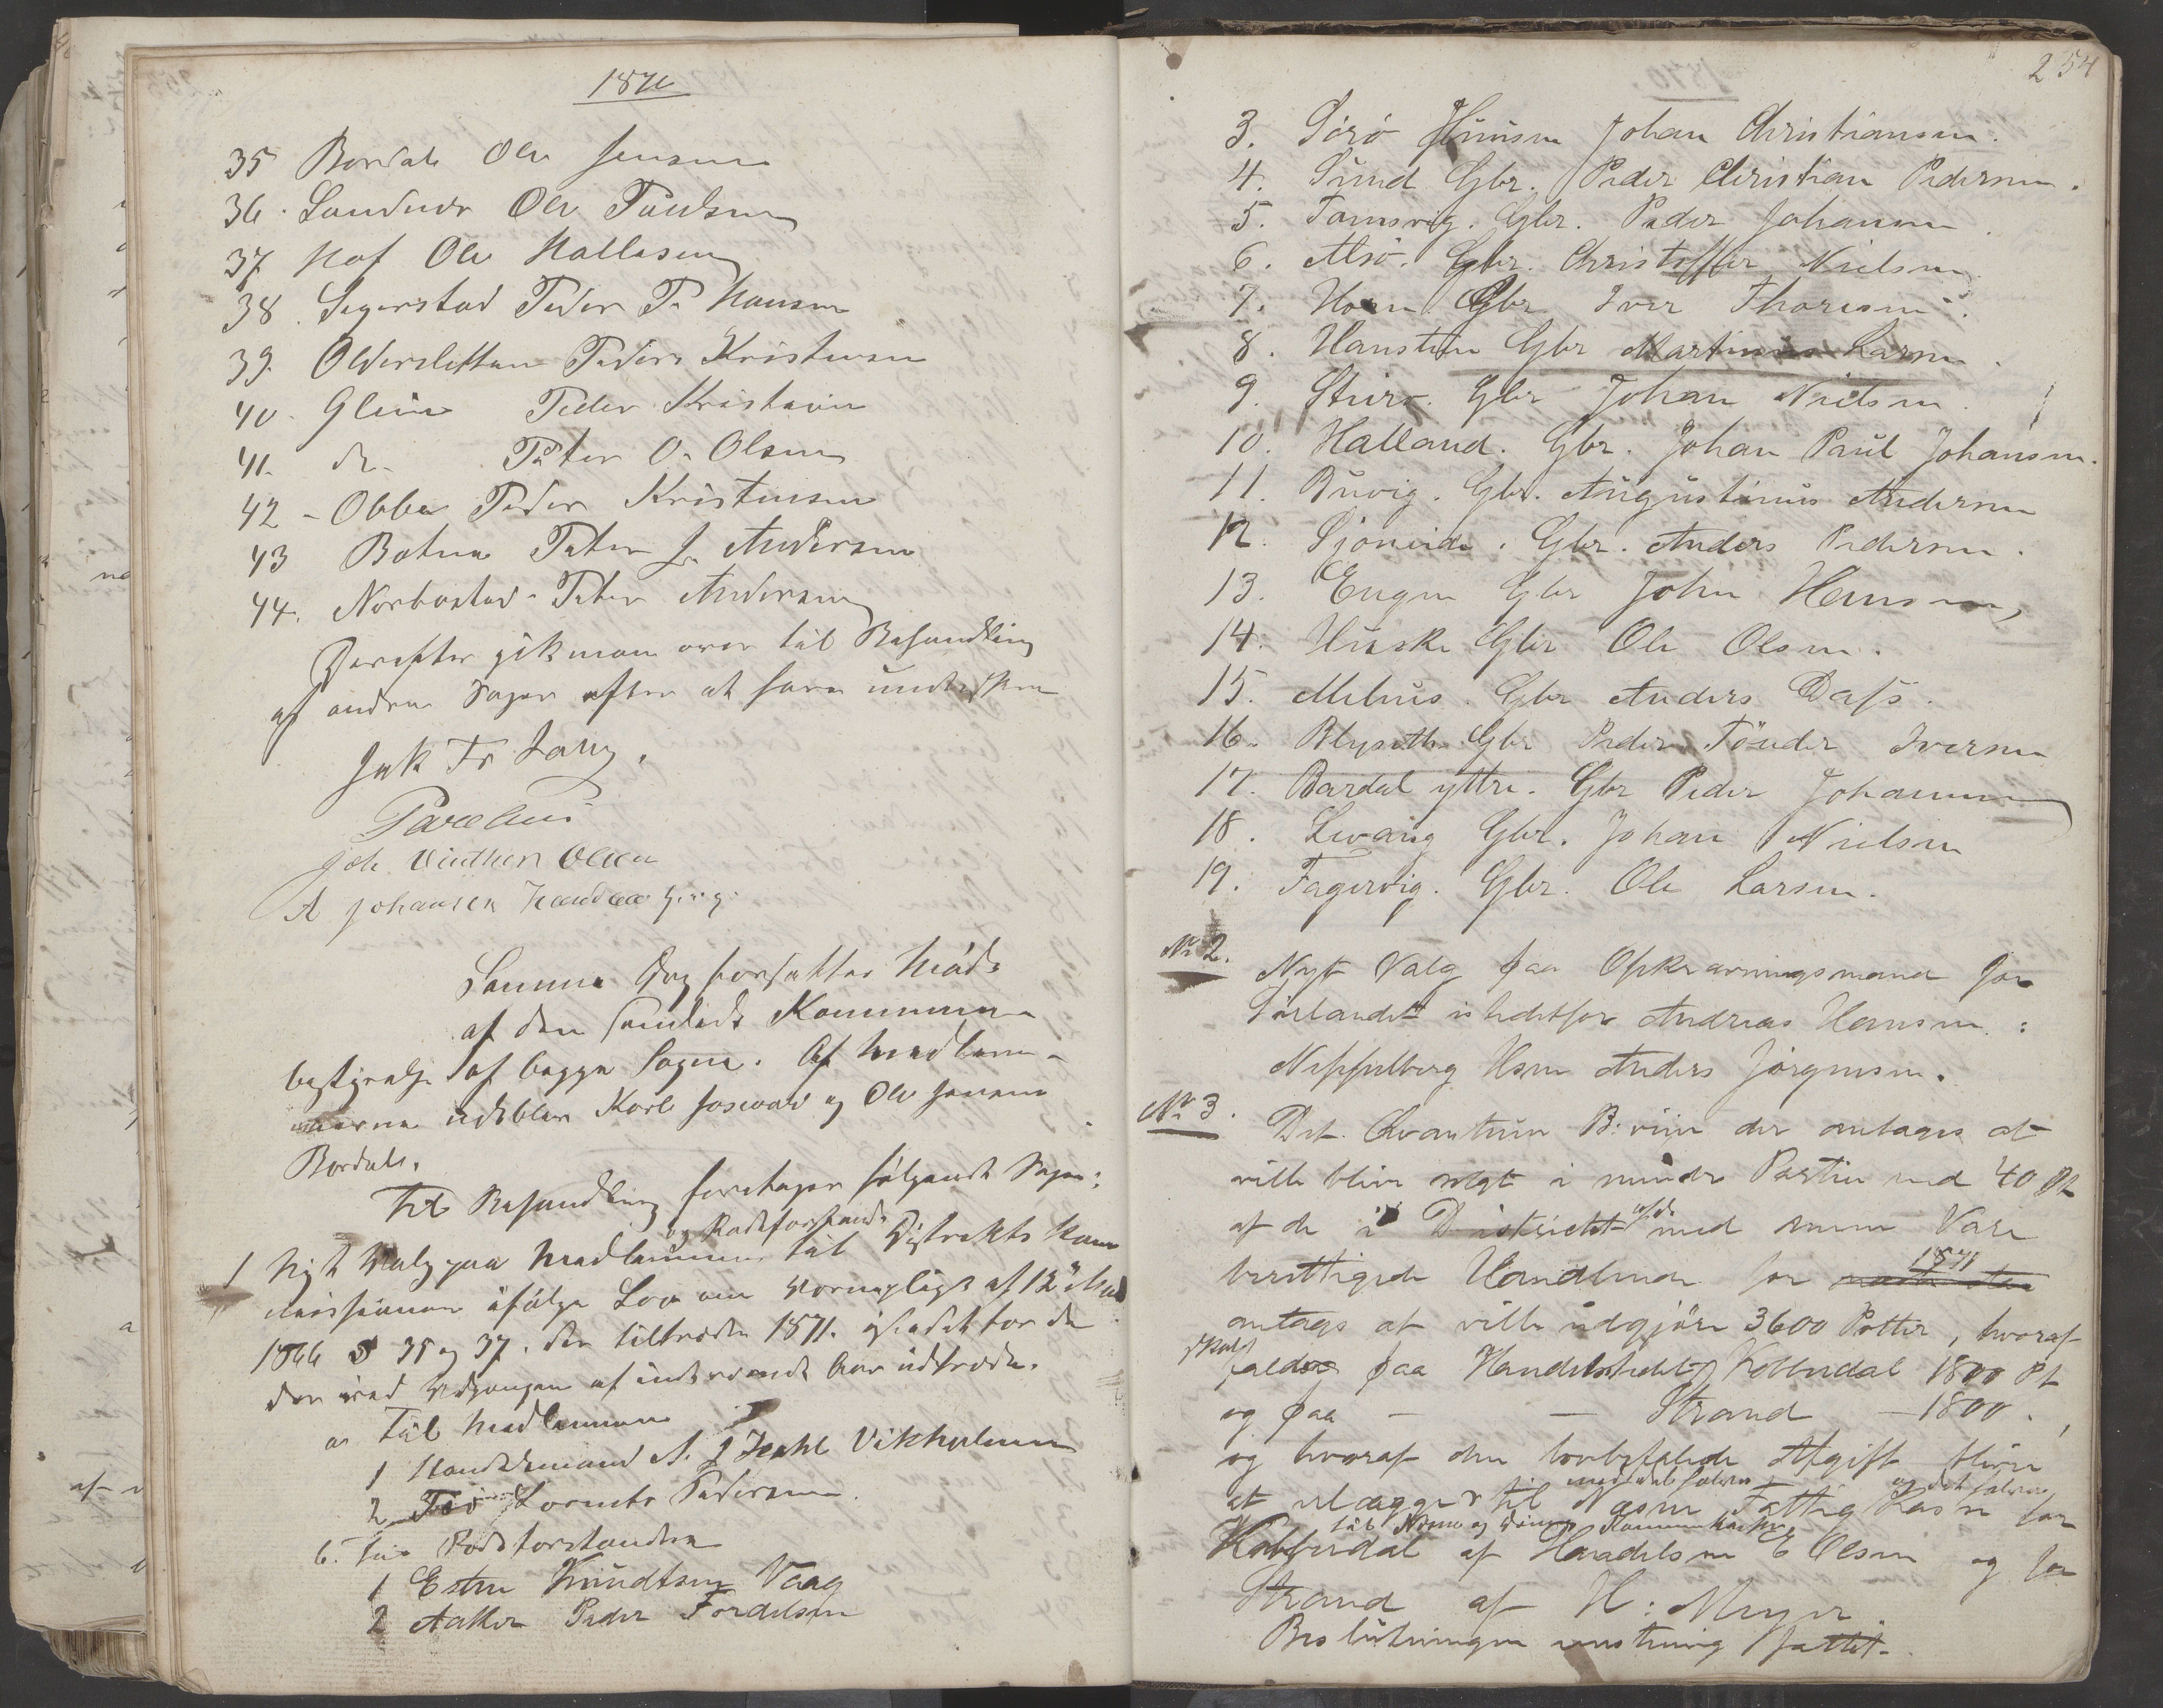 1870
35 Bardal Ole Jensen
36. Sandnes Ole Paulsen
37. Hof Ole Hallesen
38. Segerstad Peder P. Hansen
39. Oldersletten Peder Kristensen
40. Glein Peder Kristensen
41. do. Peter O. Olsen
42 - Obbe Peder Kristensen
43 Botne Peter J. Andersen
44. Norbostad. Peter Andersen
Derefter gik man over til Behandling
af andre Sager efter at have underskr
Jak Fr Lang.
Parelius
Joh Vinther Olsen
A Johansen
Samme Dag fortsattes Møde
af den samlede Kommune
bestyrelse af begge Sogne. Af Medlem-
merne udeblev Karl Josvard og Ole Jensen
Bardal.
Til Behandling foretoges følgende Sager:
og Rodeforstandere
1 Nyt Valg paa Medlemmer til Distrikts kom
missionen ifølge Lov om Vernepligt af 12 Mai
1866 § 35 og 37. der tiltræder 1871. istedetfor de
der ved Udgangen af indeværende Aar udtræde.
a Til Medlemmer
1 Handelsmand A. J Zahl Vikholmen
2 Lorents Pedersen
b. Til Rodeforstandere
1 Esten Knudtsen Vaag
2 Aaker Peder Fordelsen
254
3. Sörö Huusm Johan Christiansen.
4. Sund Gbr. Peder Christian Pedersen.
5. Tomsvig. Gbr. Peder Johansen.
6. Alsö. Gbr. Christoffer Nielsen.
7. Horn Gbr Iver Thoresen.
8. Hansten Gbr Martinus Larsen.
9. Sturo. Gbr Johan Nielsen.
10. Halland. Gbr. Johan Paul Johansen.
11. Buvig. Gbr. Augustinus Andersen
12. Sjöneide. Gbr. Anders Pedersen.
13. Engen Gbr John Hansen,
14. Huske Gbr Ole Olsen.
15. Melnes. Gbr Anders Dass.
16. Blyseth Gbr Peder Tönder Iversen
17. Bardal yttre. Gbr Peder Johannesen
18. Levang Gbr. Johan Nielsen
19. Fagervig. Gbr. Ole Larsen.
No 2.
Nyt Valg paa Opkrævningsmænd for
Sörlandet istedetfor Andreas Hansen:
Neppelberg Hsm Anders Jörgensen.
No 3.
Det Qvantum B:viin der antages at
ville blive solgt i mindre Partier end 40 Pt
af de i Districtet med samme Vare
berettigede Handlende for 1871
antages at ville udgjöre 3600 Potter, hvoraf
skulde
falde paa Handelsstedet Kobberdal 1800 Pt
og paa — — Strand — 1800.
og hvoraf den lovbefalede Afgift bliver
med det halve og det halve
at erlægge til Næsne Fattig Kasse for
til Næsne og Dönnes Kommunekasse
Kobberdal af Handelsm E Olsen og for
Strand af H: Meyer.
Beslutningen eenstemmig fattet.